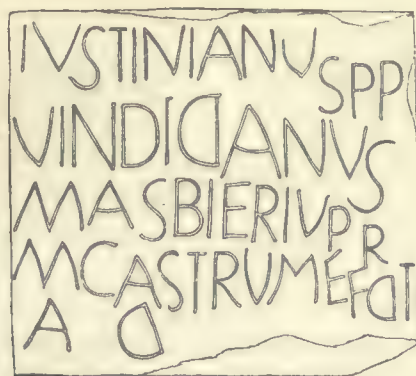 IVSTINIANVSPP
VINDICIANVS
MASBIERIVPR
MCASTRVMEFCIT
A